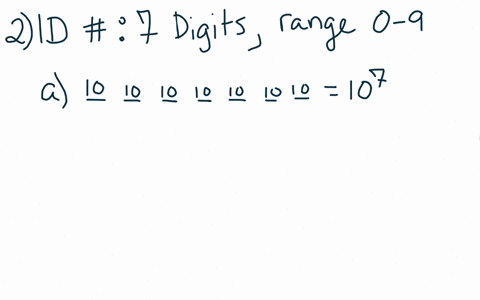 2) ID #: 7 Digits, range 0-9
a) 10 10 10 10 10 10 10 = 10⁷